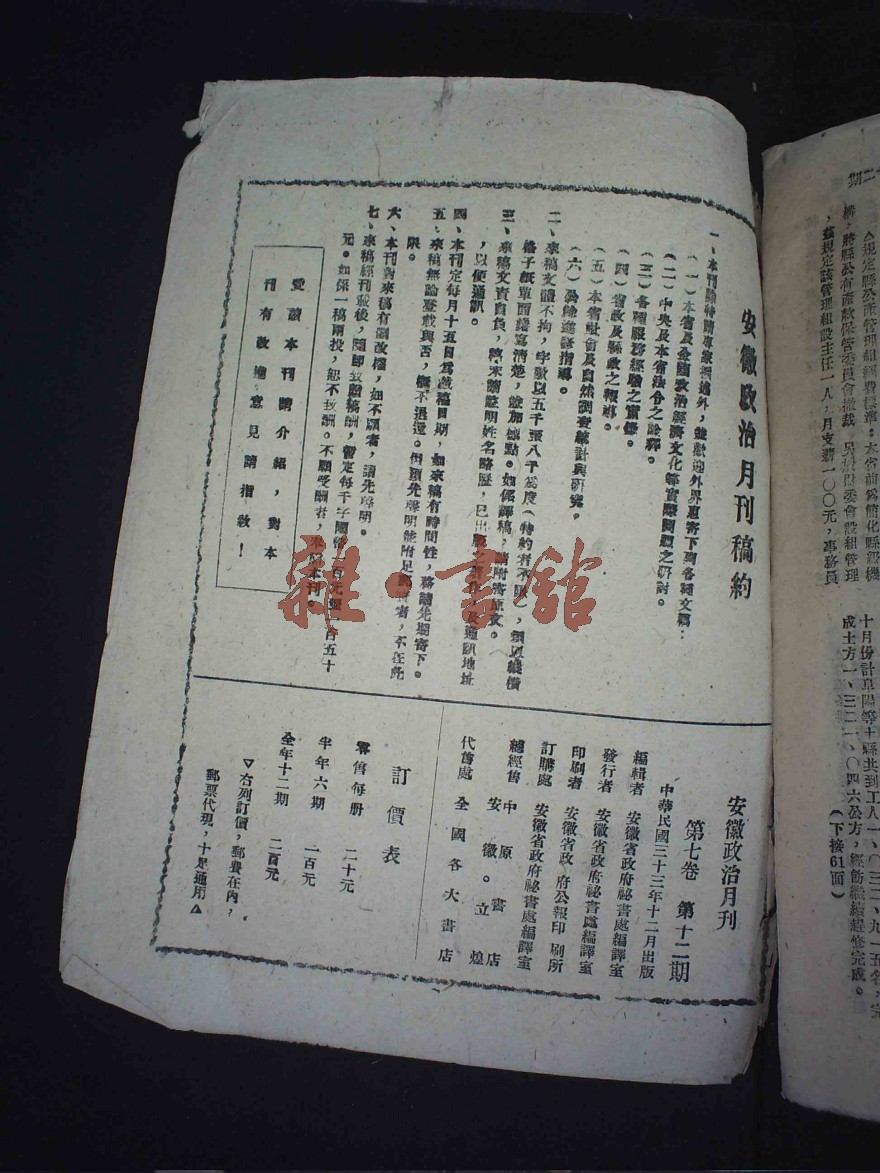 安徽政治月刊稿約
一、本刊除特請專家撰述外，並歡迎外界惠寄下列各種文稿：
（一）本省及全國政治經濟文化等實際問題之研討。
（二）中央及本省法令之詮釋。
（三）各種服務經驗之實錄。
（四）省政及縣政之報導。
（五）本省社會及自然調查統計與研究。
（六）公餘進修指導。
二、來稿文體不拘，字數以五千至八千為度（特約者不限），須以橫
格子紙單面繕寫清楚，並加標點。如係譯稿，請附寄原文。
三、來稿文責自負，稿末請註明姓名略歷，已出版之著作，及通訊地址
，以便通訊。
四、本刊定每月十五日為截稿日期，如來稿有時間性，務請先期寄下。
五、來稿無論登載與否，概不退還。但預先聲明能附足郵資者，不在此
限。
六、本刊對來稿有刪改權，如不願者，請先聲明。
七、來稿經刊載後，隨即致贈稿酬，暫定每千字國幣一百元至一百五十
元。如係一稿兩投，恕不致酬。不願受酬者，本刊。
愛讀本刊請介紹，對本
刊有改進意見請指教！
安徽政治月刊
第七卷 第十二期
中華民國三十三年十二月出版
編輯者 安徽省政府祕書處編譯室
發行者 安徽省政府祕書處編譯室
印刷者 安徽省政府公報印刷所
訂購處 安徽省政府祕書處編譯室
總經售 中原書店
安徽。立煌
代售處 全國各大書店
訂價表
零售每册 二十元
半年六期 一百元
全年十二期 二百元
▽右列訂價，郵費在內，
郵票代現，十足通用△
二期
△規定縣公產管理組經費標準：本省前為簡化縣級機
構，將縣公有產款保管委員會撤裁
，茲規定該管理組設主任一人，月支薪一〇〇元，事務員
十月份計阜陽等十縣共到工人一、〇三二、九一五名，完
成土方一、三二一、〇四六公方，經飭繼續趕修完成。
（下接61面）
雜·書館